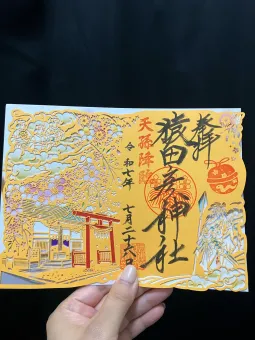 奉拝
猿田彦神社
天孫降臨
令和七年
七月二十六日